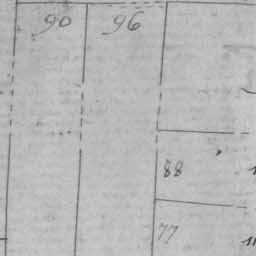 90 96
88
77